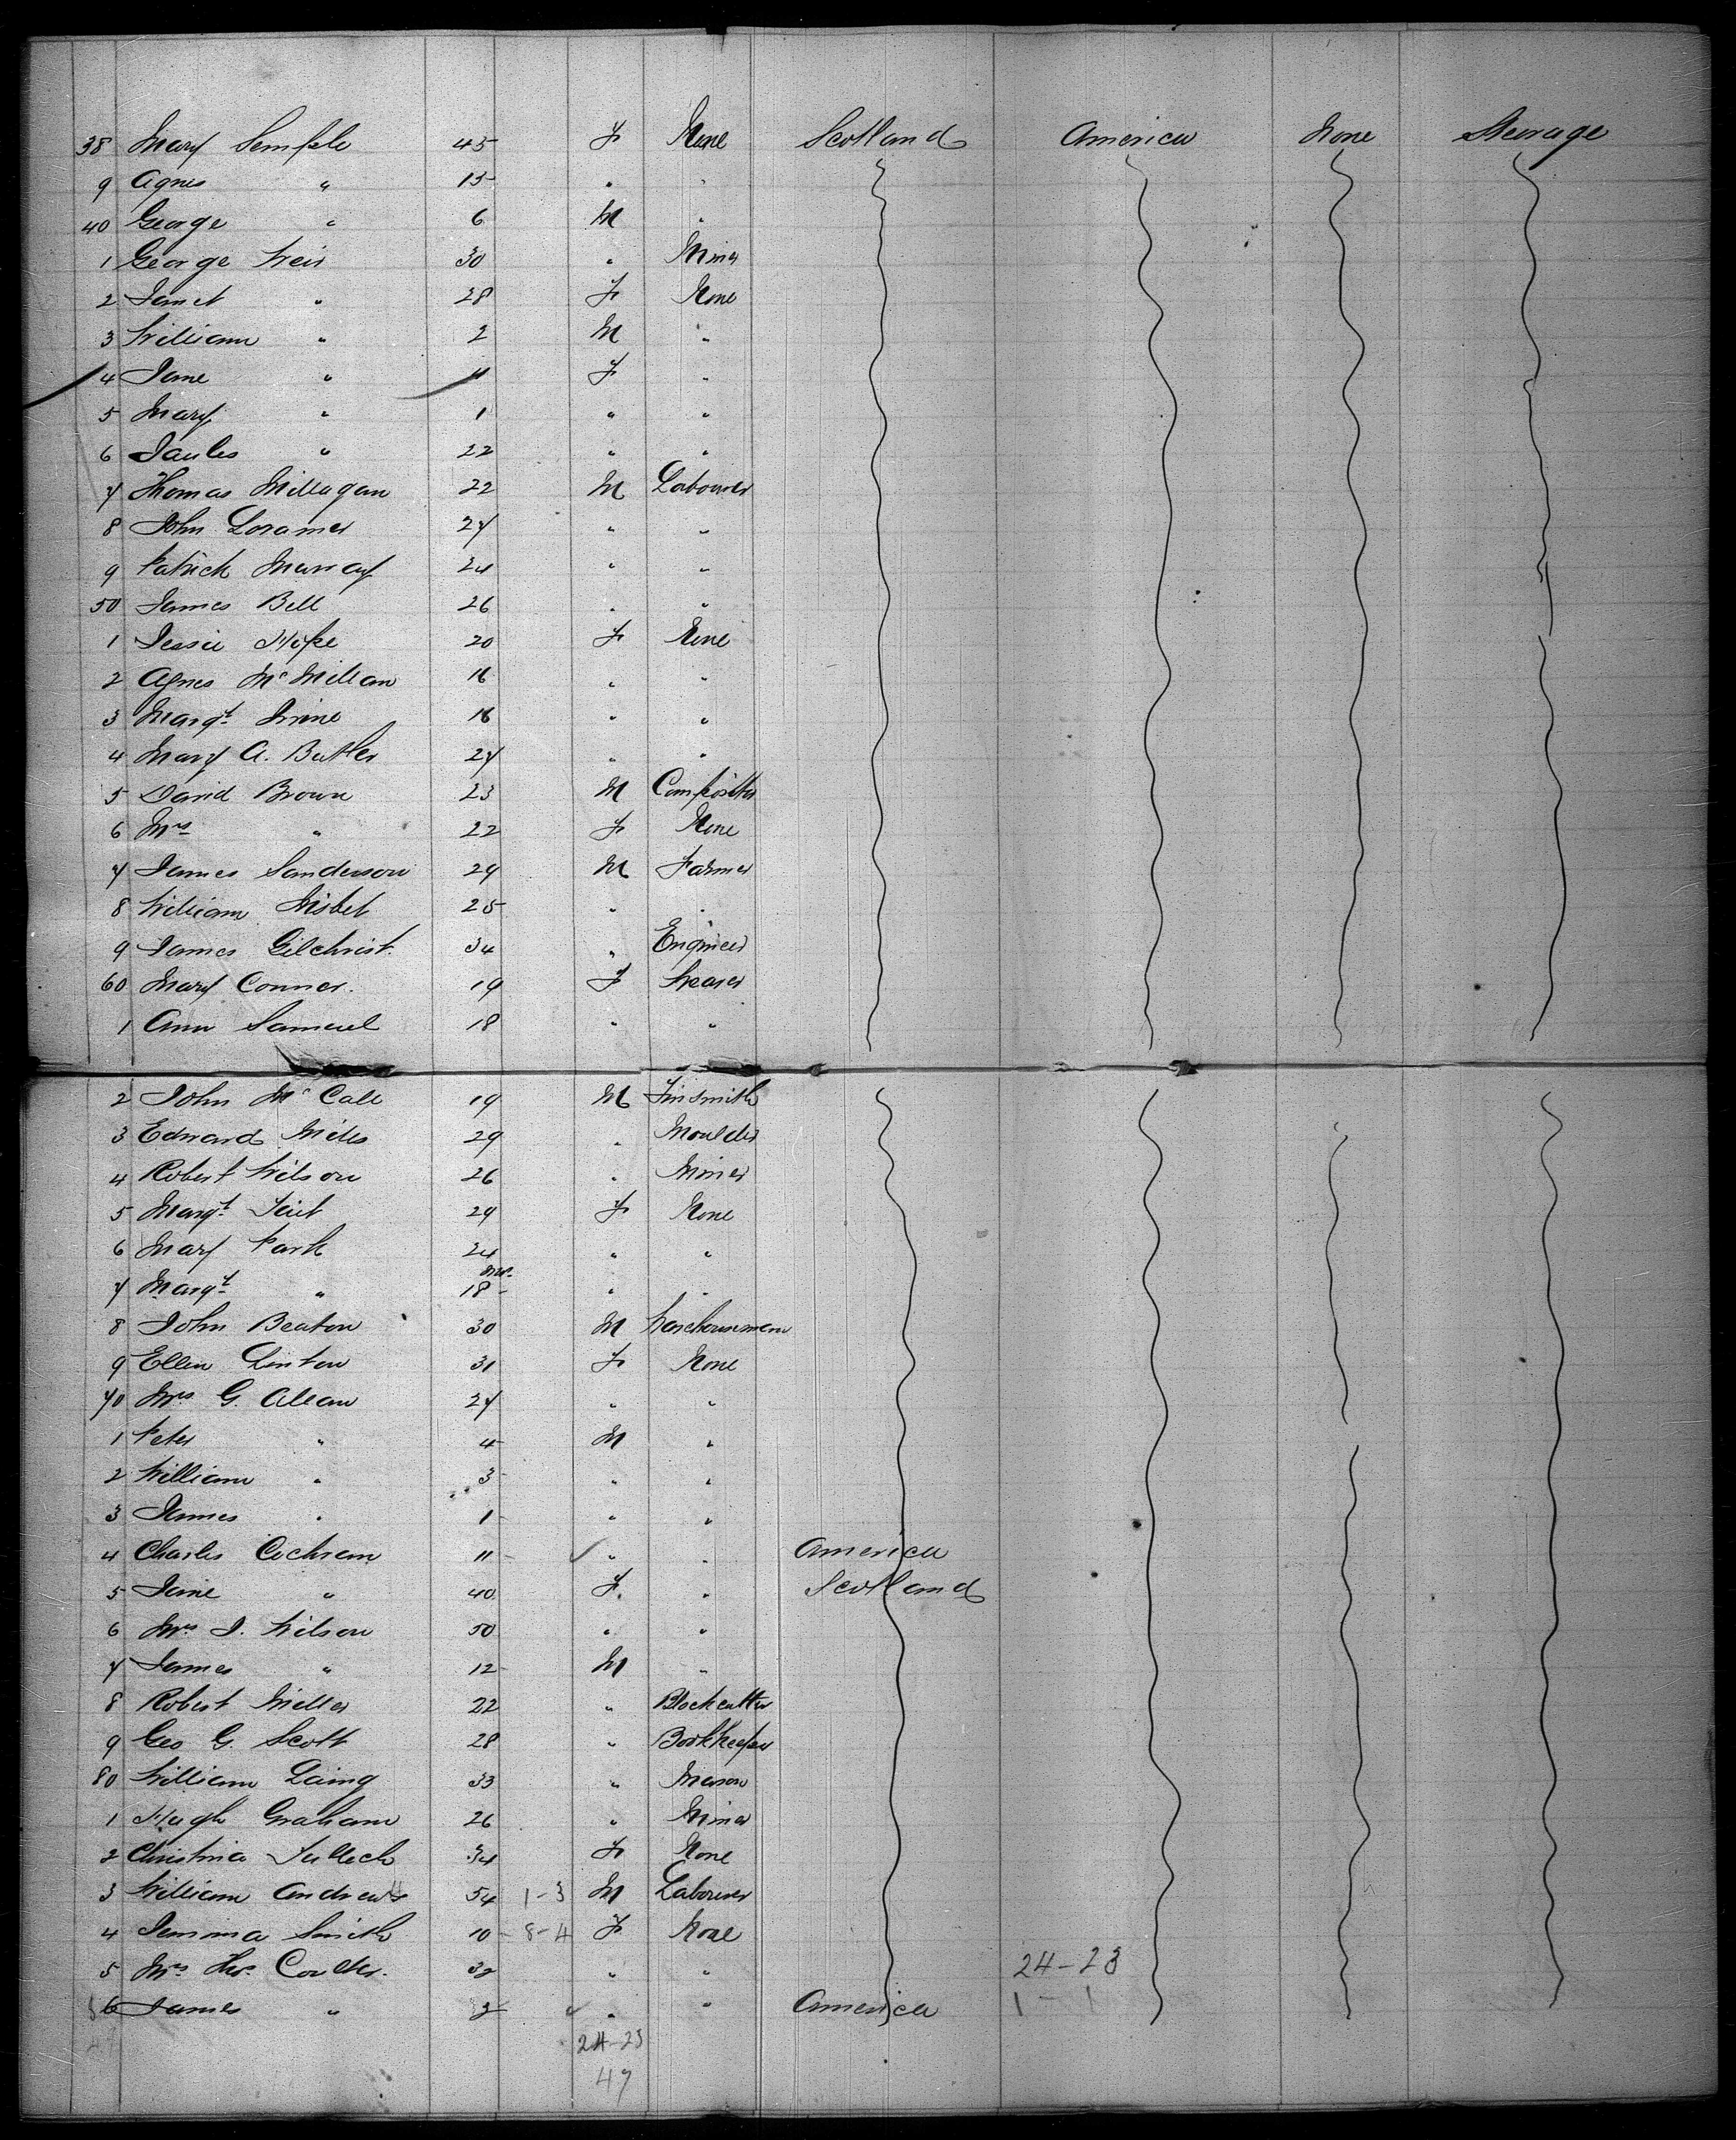 38 Mary Semple 45 F None Scotland America None Steerage
9 Agnes " 15 " "
40 George " 6 M "
1 George Weir 30 " Miner
2 Janet " 28 F None
3 William " 2 M "
4 Jane " 11 F "
5 Mary " 1 " "
6 " 22 " "
7 Thomas Millagan 22 M Labourer
8 John Loramer 27 " "
9 Patrick Murray 24 " "
50 James Bell 26 " "
1 Jessie Hope 20 F None
2 Agnes McMillan 16 " "
3 Margt Irvine 16 " "
4 Mary A. Butler 27 " "
5 David Brown 23 M Compositor
6 Mrs " 22 F None
7 James Sanderson 29 M Farmer
8 William Nisbet 25 " "
9 James Gilchrist. 34 " Engineer
60 Mary Conner. 19 F Weaver
1 Ann Samuel 18 " "
2 John McCall 19 M Tinsmith
3 Edward Miles 29 " Moulder
4 Robert Wilson 26 " Miner
5 Margt 29 F None
6 Mary Park 24 " "
7 Margt " 18 mos. " "
8 John Beaton 30 M Warehouseman
9 Ellen Linton 31 F None
70 Mrs G. Allan 27 " "
1 Peter " 4 M "
2 William " 3 " "
3 James " 1 " "
4 Charles Cochran 11 " " America
5 Jane " 40 F. " Scotland
6 Mrs J. Wilson 50 " "
7 James " 12 M "
8 Robert Miller 22 " Blockcutter
9 Geo G. Scott 28 " Bookkeeper
80 William Laing 33 " Mason
1 Hugh Graham 26 " Miner
2 Christina Tulloch 34 F None
3 William Andrews 54 1-3 M Labourer
4 Jemima Smith 10 8-4 F None
5 Mrs Thos. Coulter. 32 " " 24-23
6 James " 2 " " America 1-1
24-23
47